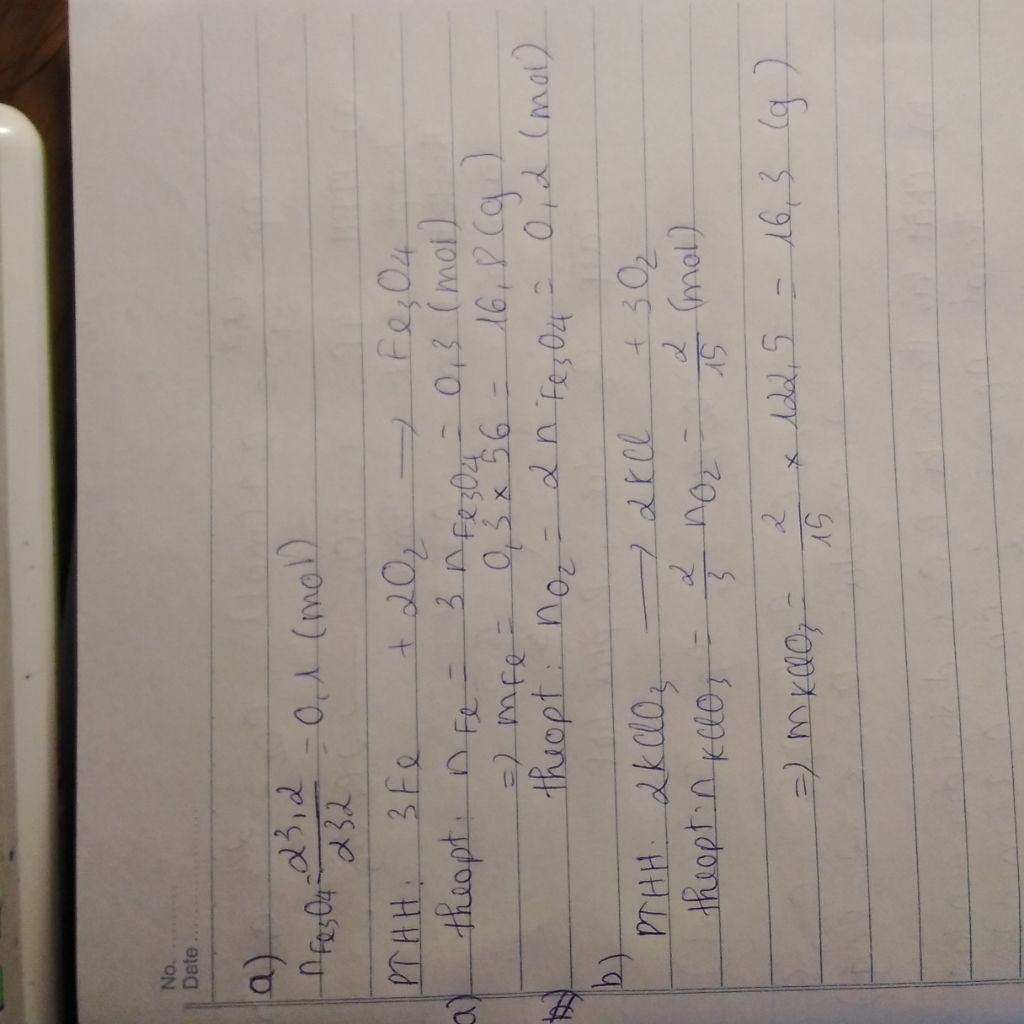 No. ..........
Date ..................
a)
nFe₃O₄ = 23,2/232 = 0,1 (mol)
PTHH: 3Fe + 2O₂ → Fe₃O₄
a) theopt: nFe = 3 nFe₃O₄ = 0,3 (mol)
=) mFe = 0,3 × 56 = 16,8 (g)
theopt: nO₂ = 2 nFe₃O₄ = 0,2 (mol)
b)
PTHH: 2KClO₃ → 2KCl + 3O₂
theopt: nKClO₃ = 2/3 nO₂ = 2/15 (mol)
=) mKClO₃ = 2/15 × 122,5 = 16,3 (g)